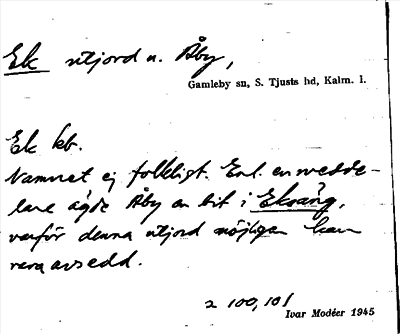 Ek utjord u. Åby,
Gamleby sn, S. Tjusts hd, Kalm. l.
Ek kb.
Namnet ej folkligt. Enl. en medde-
lare ägde Åby en bit i Ekeäng,
varför denna utjord möjligen kan
vara avsedd.
2 100, 101
Ivar Modéer 1945